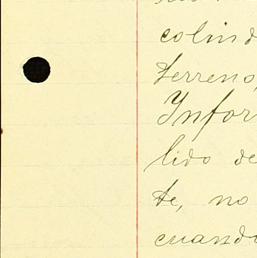 colind
terreno,
Infor
lido de
te, no
cuando